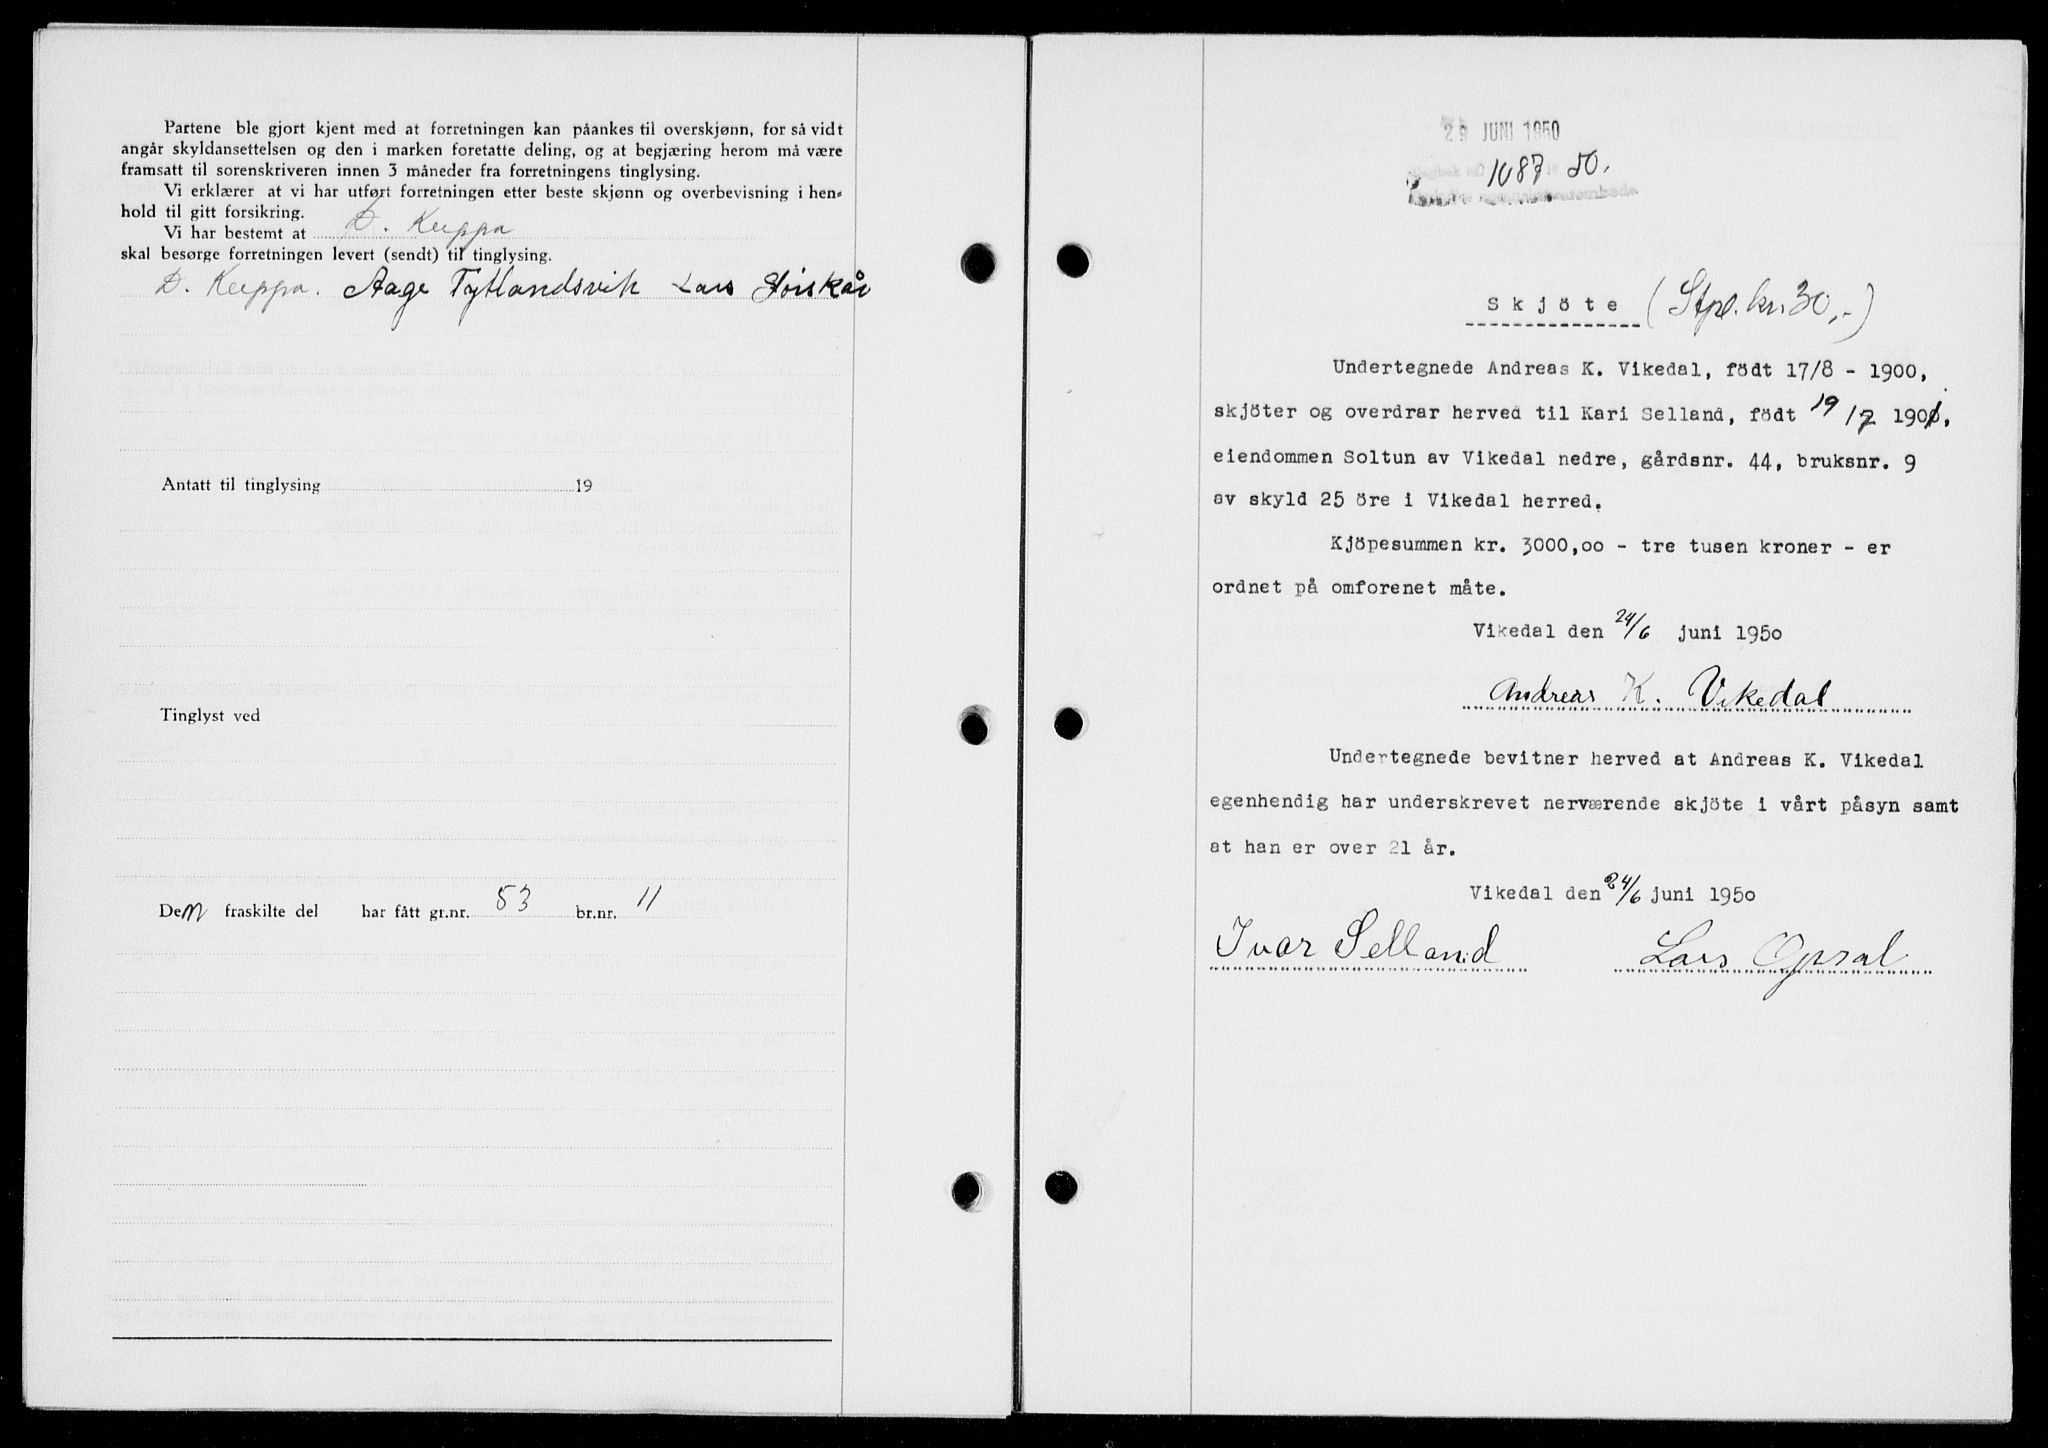 Partene ble gjort kjent med at forretningen kan påankes til overskjønn, for så vidt
angår skyldansettelsen og den i marken foretatte deling, og at begjæring herom må være
framsatt til sorenskriveren innen 3 måneder fra forretningens tinglysing.
Vi erklærer at vi har utført forretningen etter beste skjønn og overbevisning i hen-
hold til gitt forsikring.
Vi har bestemt at D. Kuppa
skal besørge forretningen levert (sendt) til tinglysing.
D. Kuppa. Aage Tytlandsvik Lars
Antatt til tinglysing 19
Tinglyst ved
Den fraskilte del har fått gr.nr. 53 br.nr. 11
29 JUNI 1950
1087 50.
Skjöte (Stpl. kr. 30,-)
Undertegnede Andreas K. Vikedal, födt 17/8 - 1900,
skjöter og overdrar herved til Kari Selland, födt 19/7 1901,
eiendommen Soltun av Vikedal nedre, gårdsnr. 44, bruksnr. 9
av skyld 25 öre i Vikedal herred.
Kjöpesummen kr. 3000,00 - tre tusen kroner - er
ordnet på omforenet måte.
Vikedal den 24/6 juni 1950
Andreas K. Vikedal
Undertegnede bevitner herved at Andreas K. Vikedal
egenhendig har underskrevet nerværende skjöte i vårt påsyn samt
at han er over 21 år.
Vikedal den 24/6 juni 1950
Ivar Selland Lars Opsal